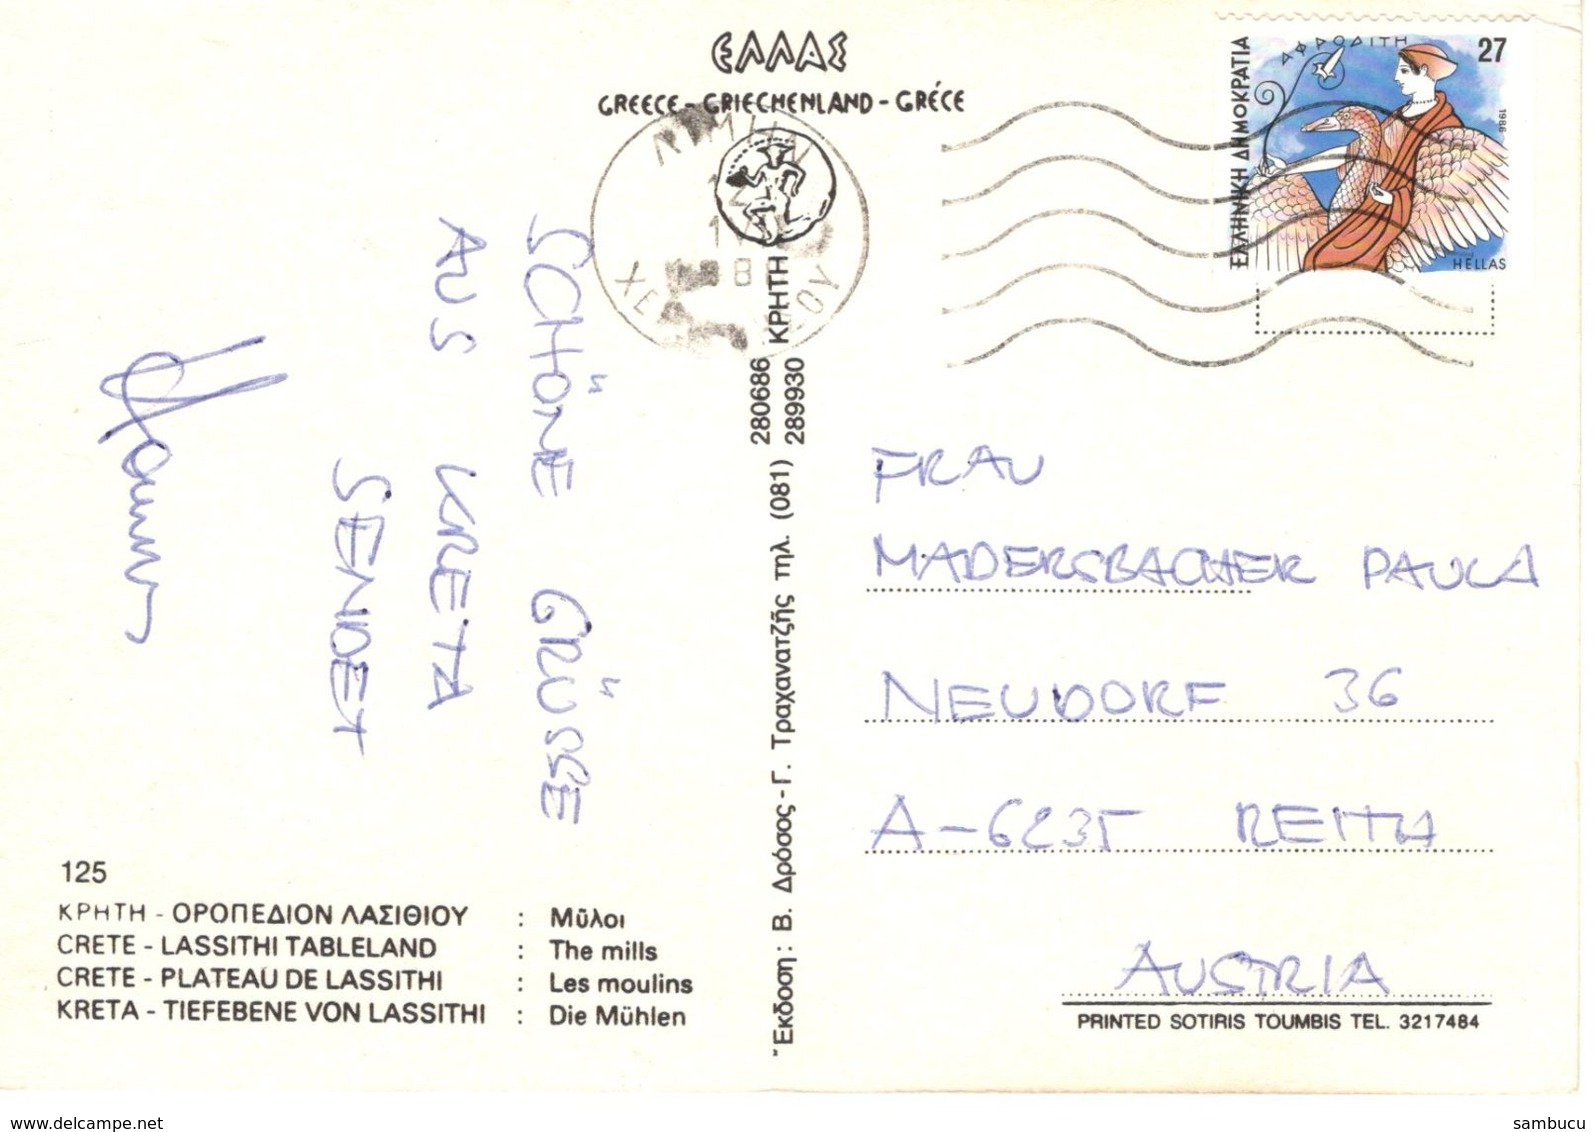 ΕΛΛΑΣ
GREECE - GRIECHENLAND - GRÉCE
ΑΦΡΟΔΙΤΗ
27
ΕΛΛΗΝΙΚΗ ΔΗΜΟΚΡΑΤΙΑ
1986
HELLAS
SCHÖNE GRÜSSE
AUS KRETA
SENDET
125
ΚΡΗΤΗ - ΟΡΟΠΕΔΙΟΝ ΛΑΣΙΘΙΟΥ : Μῦλοι
CRETE - LASSITHI TABLELAND : The mills
CRETE - PLATEAU DE LASSITHI : Les moulins
KRETA - TIEFEBENE VON LASSITHI : Die Mühlen
Ἔκδοση : Β. Δρόσος - Γ. Τραχανατζῆς τηλ. (081) 280686 289930 ΚΡΗΤΗ
FRAU
MADERSBACHER PAULA
NEUDORF 36
A-6235 REITH
AUSTRIA
PRINTED SOTIRIS TOUMBIS TEL. 3217484
www.delcampe.net
sambucu